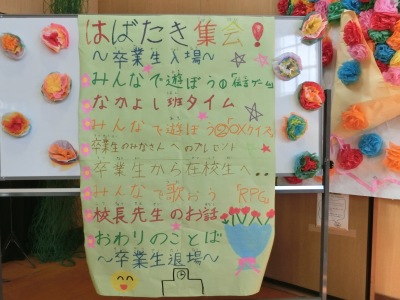 はばたき集会！
～卒業生入場～
みんなで遊ぼう①「伝言ゲーム」
なかよし班タイム
みんなで遊ぼう②「○×クイズ」
卒業生のみなさんへのプレゼント
卒業生から在校生へ…
みんなで歌おう「RPG」
校長先生のお話
おわりのことば
～卒業生退場～